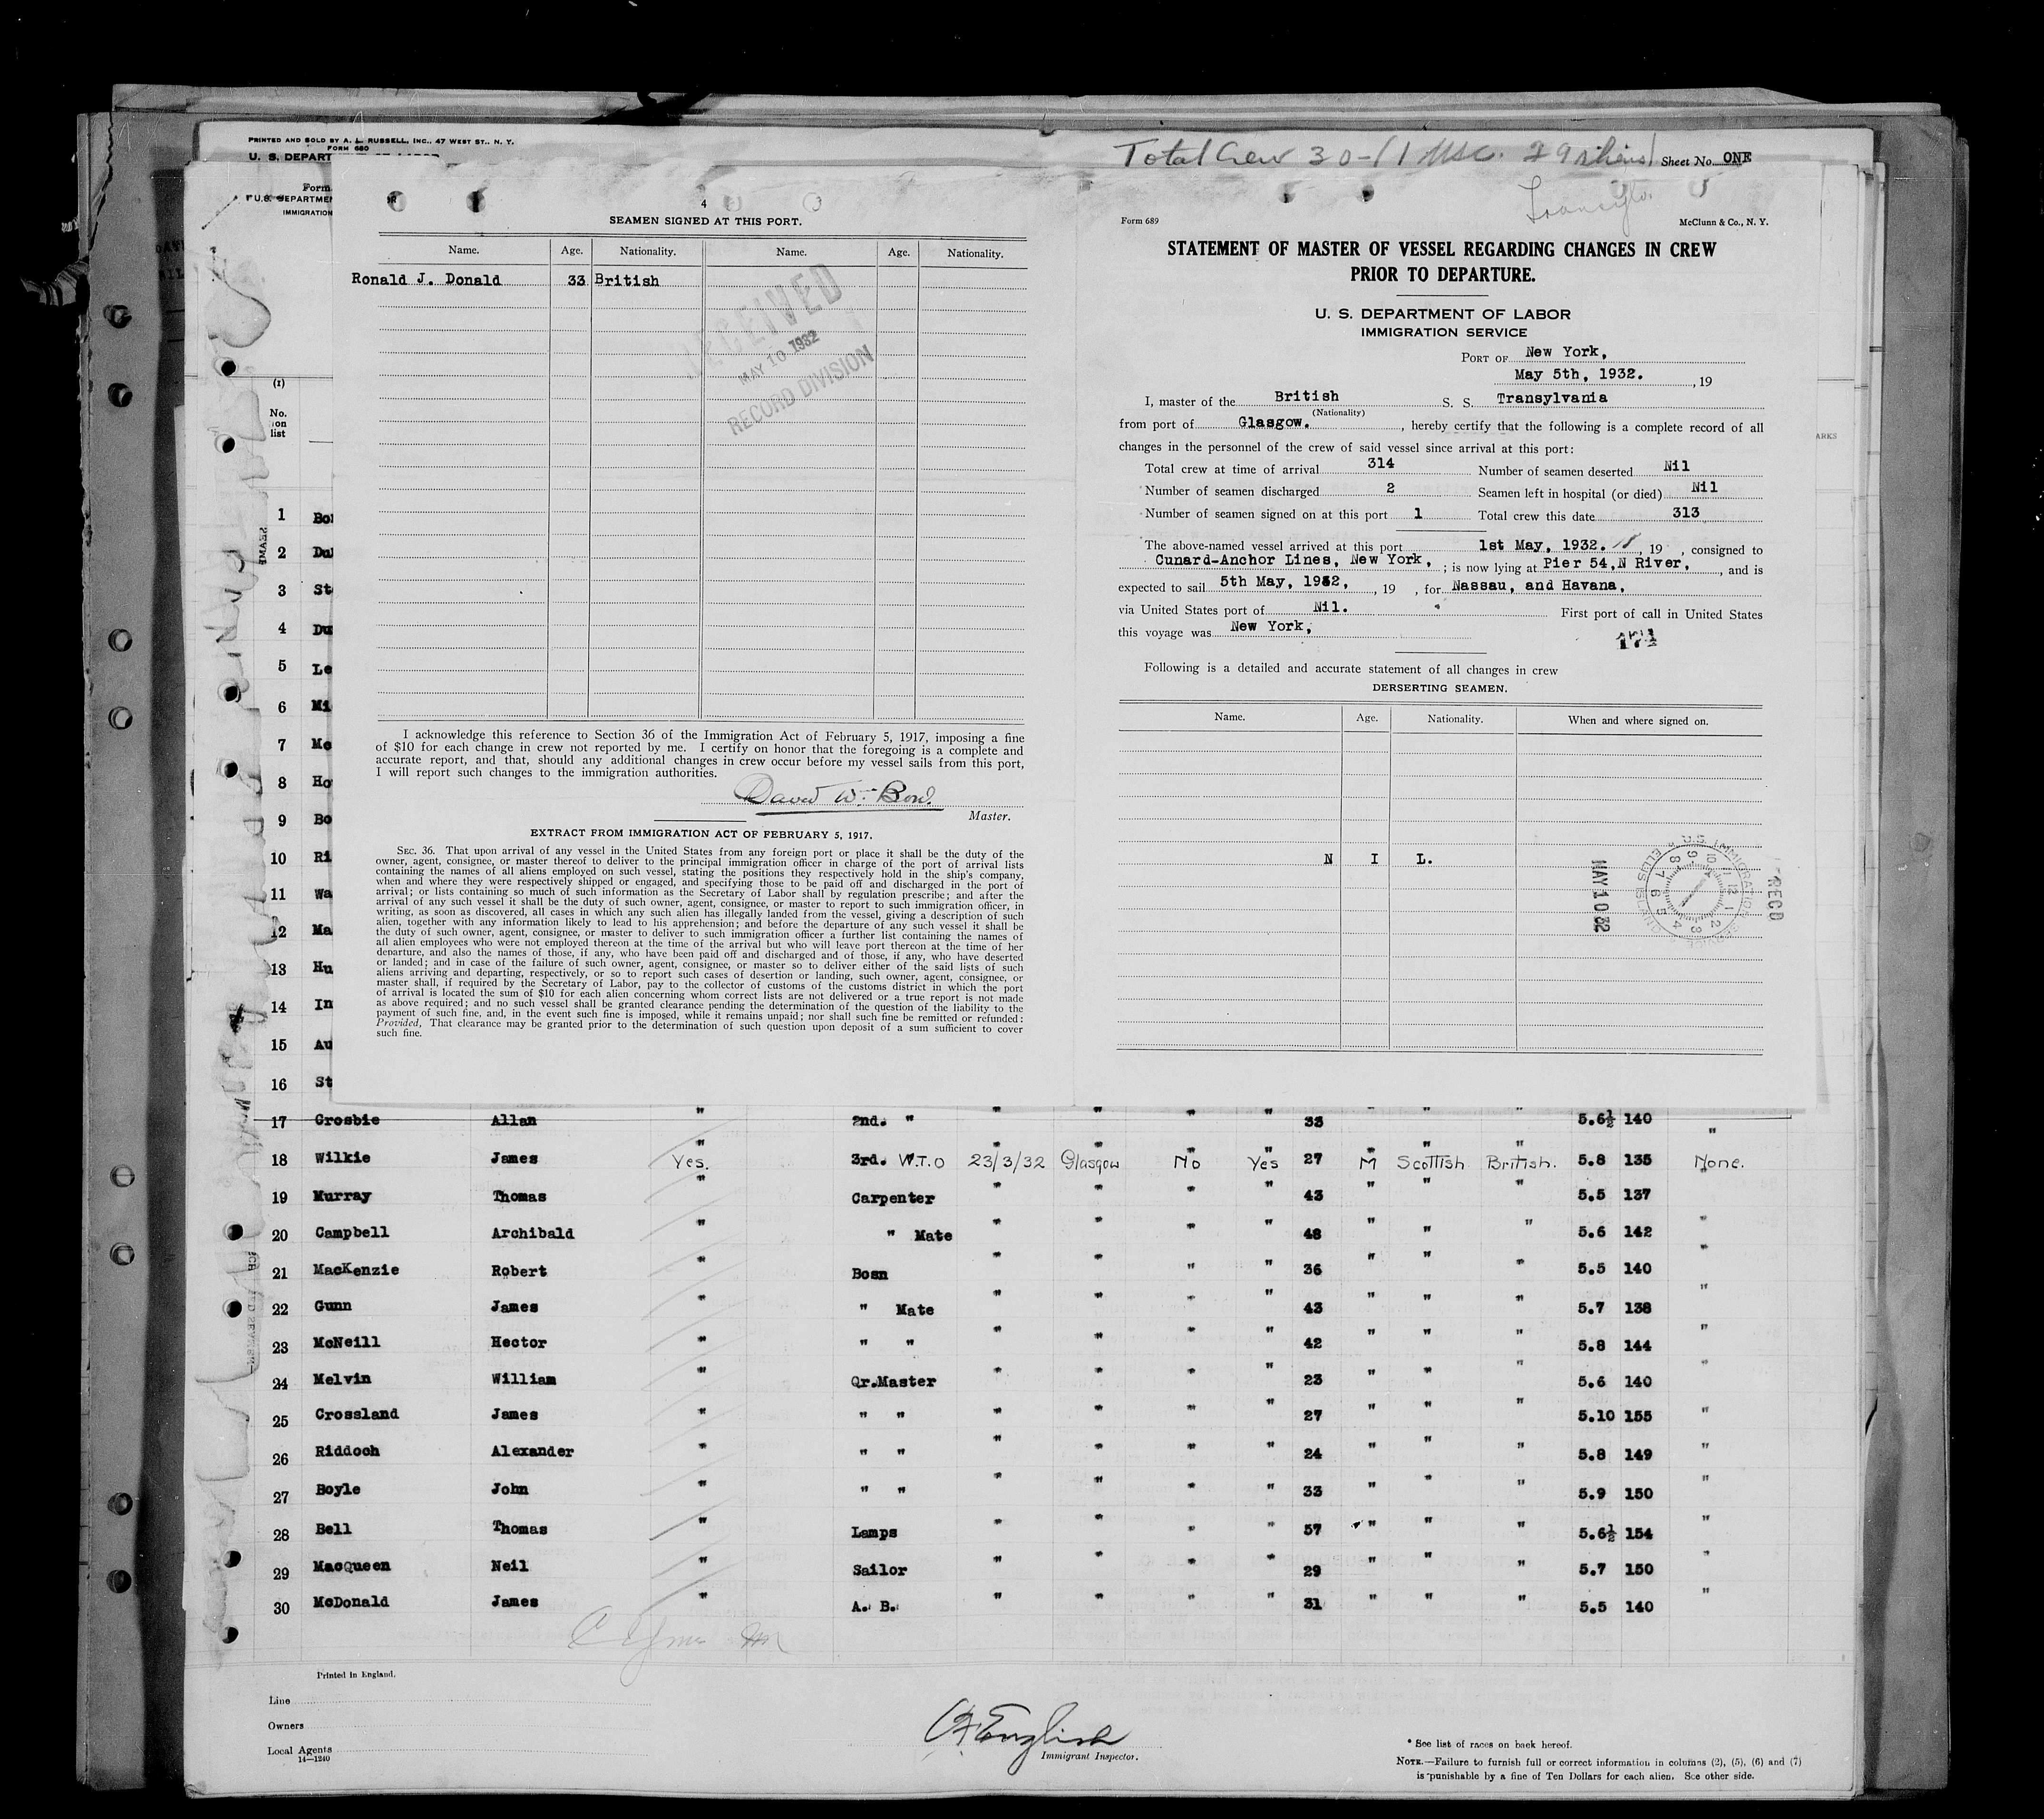 PRINTED AND SOLD BY A. L. RUSSELL, INC., 47 WEST ST., N. Y.
FORM 680
U. S. DEPART
Total Crew 30-(1 USC. 29 Aliens) Sheet No. ONE
Form
U.S. DEPARTMEN
IMMIGRATION
4
SEAMEN SIGNED AT THIS PORT.
Name. Age. Nationality. Name. Age. Nationality.
Ronald J. Donald 33 British
RECEIVED
MAY 10 1932
RECORD DIVISION
I acknowledge this reference to Section 36 of the Immigration Act of February 5, 1917, imposing a fine
of $10 for each change in crew not reported by me. I certify on honor that the foregoing is a complete and
accurate report, and that, should any additional changes in crew occur before my vessel sails from this port,
I will report such changes to the immigration authorities.
David W. Bone.
Master.
EXTRACT FROM IMMIGRATION ACT OF FEBRUARY 5, 1917.
SEC. 36. That upon arrival of any vessel in the United States from any foreign port or place it shall be the duty of the
owner, agent, consignee, or master thereof to deliver to the principal immigration officer in charge of the port of arrival lists
containing the names of all aliens employed on such vessel, stating the positions they respectively hold in the ship's company,
when and where they were respectively shipped or engaged, and specifying those to be paid off and discharged in the port of
arrival; or lists containing so much of such information as the Secretary of Labor shall by regulation prescribe; and after the
arrival of any such vessel it shall be the duty of such owner, agent, consignee, or master to report to such immigration officer, in
writing, as soon as discovered, all cases in which any such alien has illegally landed from the vessel, giving a description of such
alien, together with any information likely to lead to his apprehension; and before the departure of any such vessel it shall be
the duty of such owner, agent, consignee, or master to deliver to such immigration officer a further list containing the names of
all alien employees who were not employed thereon at the time of the arrival but who will leave port thereon at the time of her
departure, and also the names of those, if any, who have been paid off and discharged and of those, if any, who have deserted
or landed; and in case of the failure of such owner, agent, consignee, or master so to deliver either of the said lists of such
aliens arriving and departing, respectively, or so to report such cases of desertion or landing, such owner, agent, consignee, or
master shall, if required by the Secretary of Labor, pay to the collector of customs of the customs district in which the port
of arrival is located the sum of $10 for each alien concerning whom correct lists are not delivered or a true report is not made
as above required; and no such vessel shall be granted clearance pending the determination of the question of the liability to the
payment of such fine, and, in the event such fine is imposed, while it remains unpaid; nor shall such fine be remitted or refunded:
Provided, That clearance may be granted prior to the determination of such question upon deposit of a sum sufficient to cover
such fine.
Form 689 McClunn & Co., N. Y.
STATEMENT OF MASTER OF VESSEL REGARDING CHANGES IN CREW
PRIOR TO DEPARTURE.
U. S. DEPARTMENT OF LABOR
IMMIGRATION SERVICE
PORT OF New York,
May 5th, 1932. , 19
I, master of the British S. S. Transylvania
(Nationality)
from port of Glasgow. , hereby certify that the following is a complete record of all
changes in the personnel of the crew of said vessel since arrival at this port:
Total crew at time of arrival 314 Number of seamen deserted Nil
Number of seamen discharged 2 Seamen left in hospital (or died) Nil
Number of seamen signed on at this port 1 Total crew this date 313
The above-named vessel arrived at this port 1st May, 1932. , 19 , consigned to
Cunard-Anchor Lines, New York, ; is now lying at Pier 54,N River, , and is
expected to sail 5th May, 1932, , 19 , for Nassau, and Havana,
via United States port of Nil. First port of call in United States
this voyage was New York,
174
Following is a detailed and accurate statement of all changes in crew
DERSERTING SEAMEN.
Name. Age. Nationality. When and where signed on.
N I L.
MAY 10 32
U.S. IMMIGRATION SERVICE ELLIS ISLAND
REC'D
ARKS
(1)
No. on list
1 Bo
2 Du
3 St
4 Du
5 Le
6 Mi
7 Mc
8 Ho
9 Bo
10 Ri
11 Wa
12 Ma
13 Hu
14 In
15 Au
16 St
17 Crosbie Allan " 2nd. " " " " " 33 " " " 5.6½ 140 "
18 Wilkie James Yes. 3rd. W.T.O 23/3/32 Glasgow No Yes 27 M Scottish British. 5.8 135 None.
19 Murray Thomas " Carpenter " " " " 43 " " " 5.5 137
20 Campbell Archibald " " Mate " " " " 48 " " " 5.6 142 "
21 MacKenzie Robert " Bosn " " " " 36 " " " 5.5 140 "
22 Gunn James " " Mate " " " " 43 " " " 5.7 138 "
23 McNeill Hector " " " " " " " 42 " " " 5.8 144 "
24 Melvin William " Qr.Master " " " " 23 " " " 5.6 140 "
25 Crossland James " " " " " " " 27 " " " 5.10 155 "
26 Riddoch Alexander " " " " " " " 24 " " " 5.8 149 "
27 Boyle John " " " " " " " 33 " " " 5.9 150 "
28 Bell Thomas " Lamps " " " " 57 " " " 5.6½ 154 "
29 MacQueen Neil " Sailor " " " " 29 " " " 5.7 150 "
30 McDonald James " A. B. " " " " 31 " " " 5.5 140 "
Printed in England.
Line
Owners
Local Agents
14—1240
English
Immigrant Inspector.
* See list of races on back hereof.
NOTE.—Failure to furnish full or correct information in columns (2), (5), (6) and (7)
is punishable by a fine of Ten Dollars for each alien. See other side.